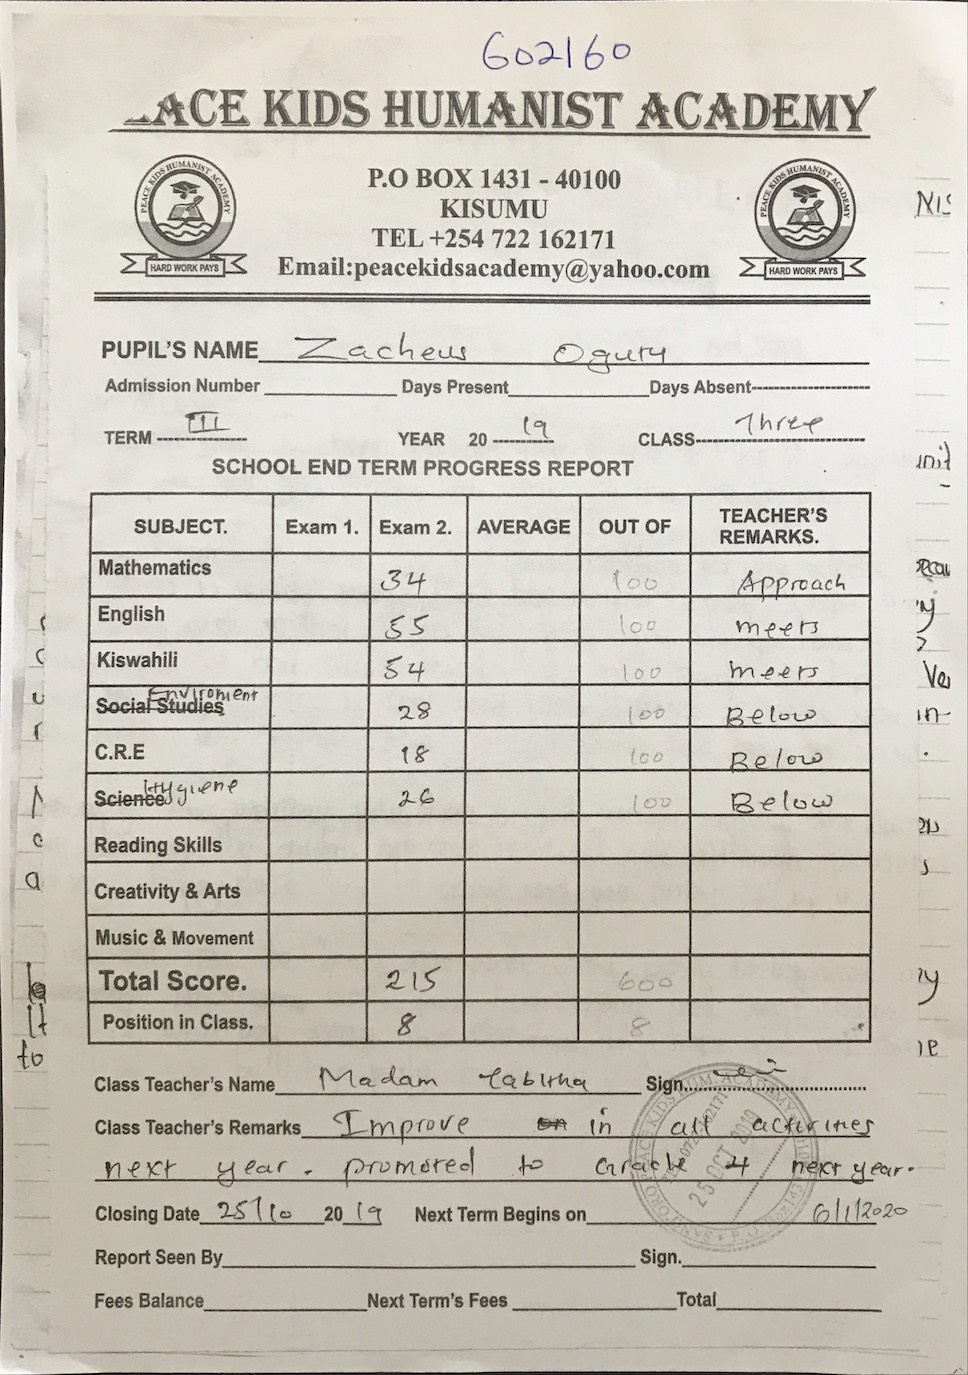 602160
ACE KIDS HUMANIST ACADEMY
PEACE KIDS HUMANIST ACADEMY
HARD WORK PAYS
P.O BOX 1431 - 40100
KISUMU
TEL +254 722 162171
Email:peacekidsacademy@yahoo.com
PEACE KIDS HUMANIST ACADEMY
HARD WORK PAYS
PUPIL'S NAME Zacheus Ogutu
Admission Number Days Present Days Absent
TERM III YEAR 2019 CLASS Three
SCHOOL END TERM PROGRESS REPORT
SUBJECT. Exam 1. Exam 2. AVERAGE OUT OF TEACHER'S REMARKS.
Mathematics 34 100 Approach
English 55 100 meets
Kiswahili 54 100 meets
Social Studies Enviroment 28 100 Below
C.R.E 18 100 Below
Science Hygiene 26 100 Below
Reading Skills
Creativity & Arts
Music & Movement
Total Score. 215 600
Position in Class. 8 8
Class Teacher's Name Madam Tabitha Sign.
Class Teacher's Remarks Improve on in all activities
next year. promoted to Grade 4 next year.
25 OCT 2019
Closing Date 25/10 2019 Next Term Begins on 6/1/2020
Report Seen By Sign.
Fees Balance Next Term's Fees Total